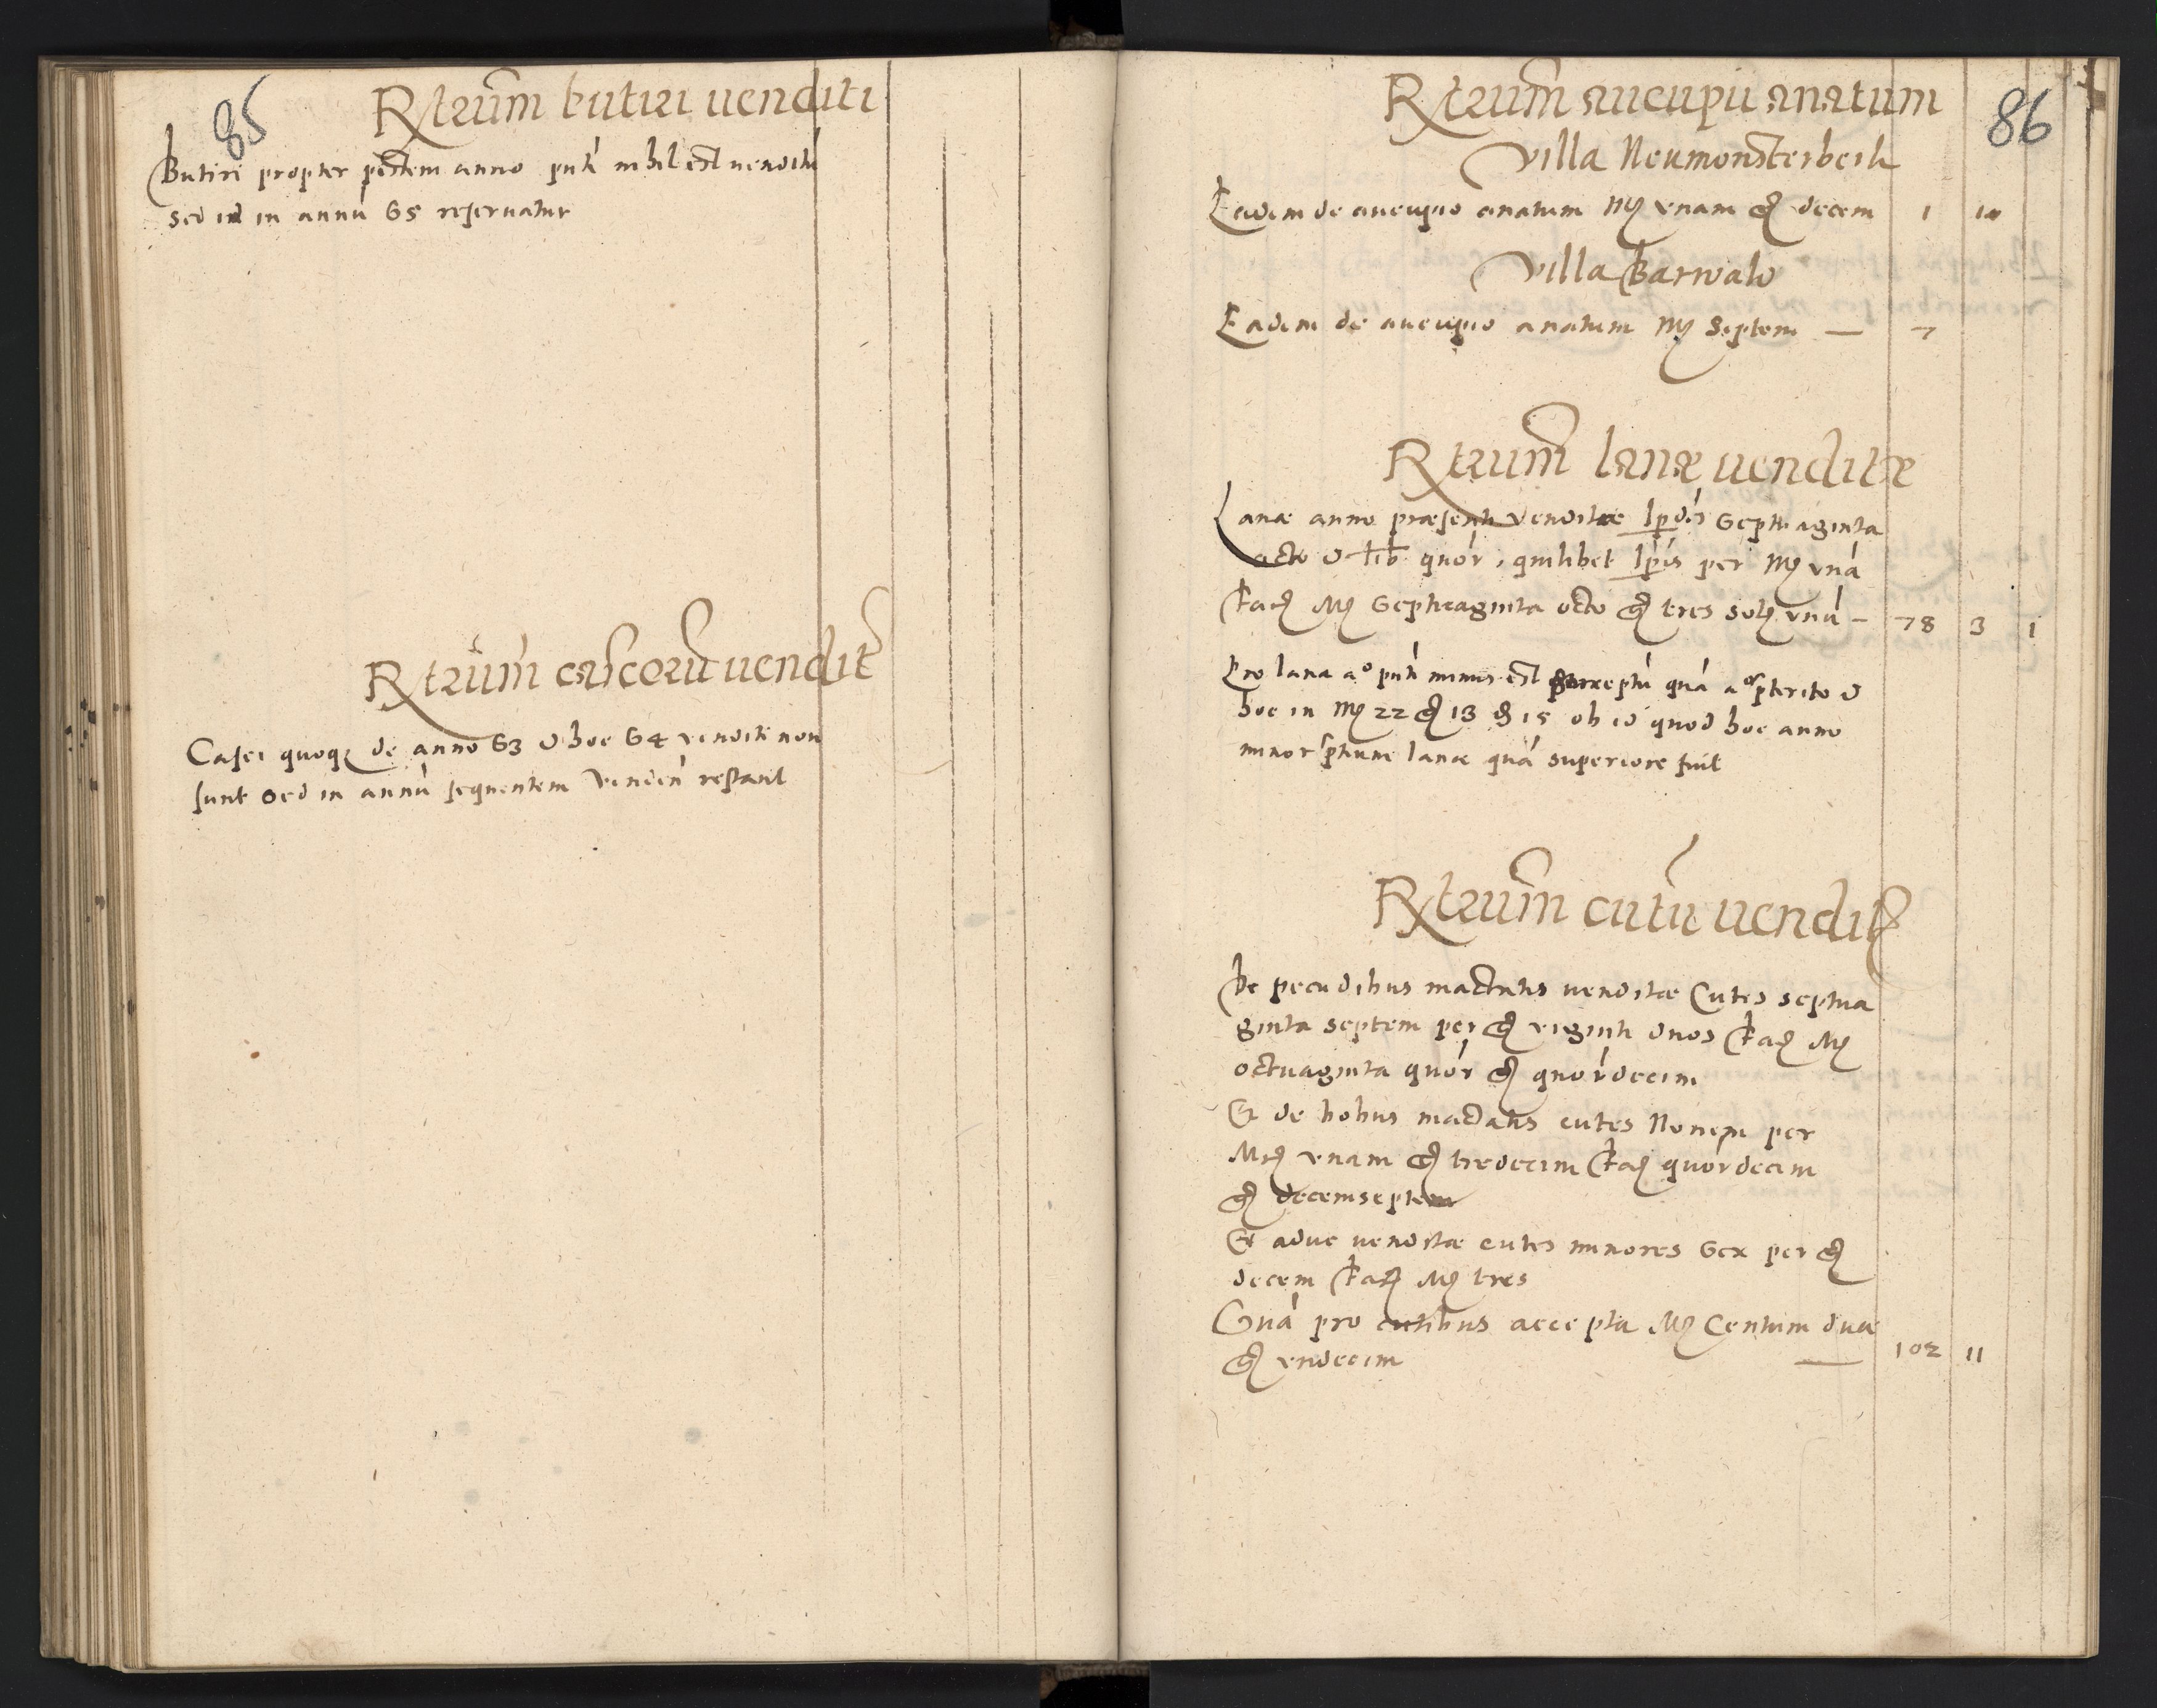 85
Rtrum butiri venditi
Butiri propter pestem anno pnti nihil est venditu
sed id in annu 65 reservatur
Rtrum caseoru vendit
Casei quoq de anno 63 & hoc 64 venditi non
sunt sed in annu sequentem venden restant
86
Rtrum aucupii anatum
Villa Neumonsterberk
Eadem de aucupio anatum M unam g decem 1 10
Villa Barwalt
Eadem de aucupio anatum M Septem — 7
Rtrum lanæ venditæ
Lanæ anno præsenti venditæ lpdes Septuaginta
octo & lib quor, quilibet lpis per M una
fac M Septuaginta octo g tres sol unu – 78 3 1
Pro lana a° pnti minus est perceptu qua a° pterito &
hoc in M 22 g 13 15 ob id quod hoc anno
minor ptium lanæ qua superiore fuit
Rtrum cutiu vendit
De pecudibus mactatis venditæ Cutes septua
ginta septem per g viginti duos fac M
octuaginta quor g quordecim
Et de bobus mactatis cutes Novem per
M unam g tredecim fac quordecim
g decemseptem
Et aduc venditæ cutes minores Sex per g
decem fac M tres
Sua pro cutibus accepta M Centum duæ
g undecim — 102 11